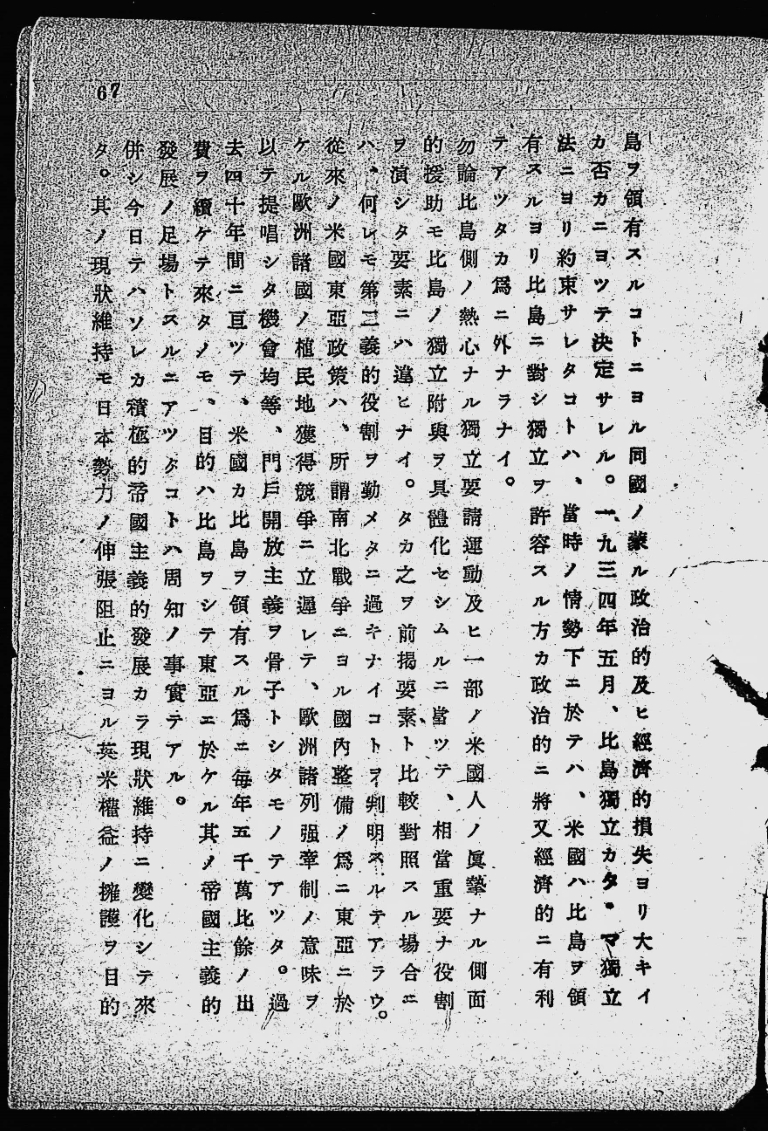 67
島ヲ領有スルコトニヨル同國ノ蒙ル政治的及ヒ經濟的損失ヨリ大キイ
カ否カニヨツテ決定サレル。一九三四年五月、比島獨立カタ・マ獨立
法ニヨリ約束サレタコトハ、當時ノ情勢下ニ於テハ、米國ハ比島ヲ領
有スルヨリ比島ニ對シ獨立ヲ許容スル方カ政治的ニ將又經濟的ニ有利
テアツタカ爲ニ外ナラナイ。
勿論比島側ノ熱心ナル獨立要請運動及ヒ一部ノ米國人ノ眞摯ナル側面
的援助モ比島ノ獨立附與ヲ具體化セシムルニ當ツテ、相當重要ナ役割
ヲ演シタ要素ニハ違ヒナイ。タカ之ヲ前揭要素ト比較對照スル場合ニ
ハ、何レモ第二義的役割ヲ勤メタニ過キナイコトヲ判明スルテアラウ。
從來ノ米國東亞政策ハ、所謂南北戰爭ニヨル國內整備ノ爲ニ東亞ニ於
ケル歐洲諸國ノ植民地獲得競爭ニ立遲レテ、歐洲諸列强牽制ノ意味ヲ
以テ提唱シタ機會均等、門戶開放主義ヲ骨子トシタモノテアツタ。過
去四十年間ニ亘ツテ、米國カ比島ヲ領有スル爲ニ每年五千萬比餘ノ出
費ヲ續ケテ來タノモ、目的ハ比島ヲシテ東亞ニ於ケル其ノ帝國主義的
發展ノ足場トスルニアツタコトハ周知ノ事實テアル。
併シ今日テハソレカ積極的帝國主義的發展カラ現狀維持ニ變化シテ來
タ。其ノ現狀維持モ日本勢力ノ伸張阻止ニヨル英米權益ノ擁護ヲ目的